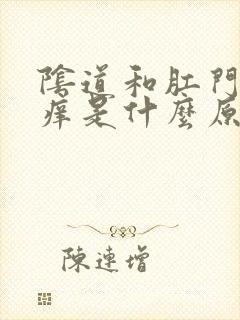 陰道和肛門
癢是什麼原
陳連增